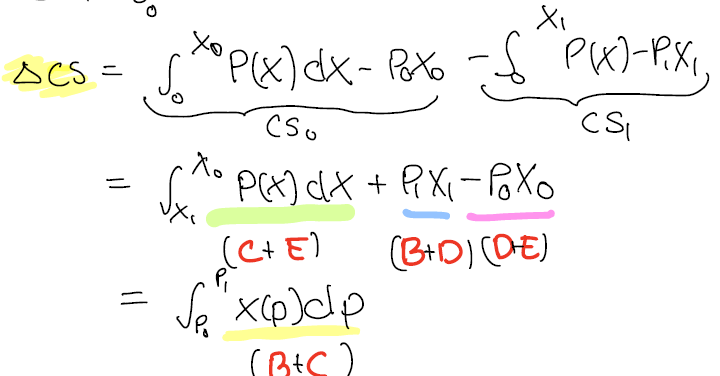 ΔCS = ∫₀^X₀ P(X)dX - P₀X₀ - ∫₀^X₁ P(X) - P₁X₁
CS₀ CS₁
= ∫_X₁^X₀ P(X)dX + P₁X₁ - P₀X₀
(C+E) (B+D) (D+E)
= ∫_P₀^P₁ x(p)dp
(B+C)